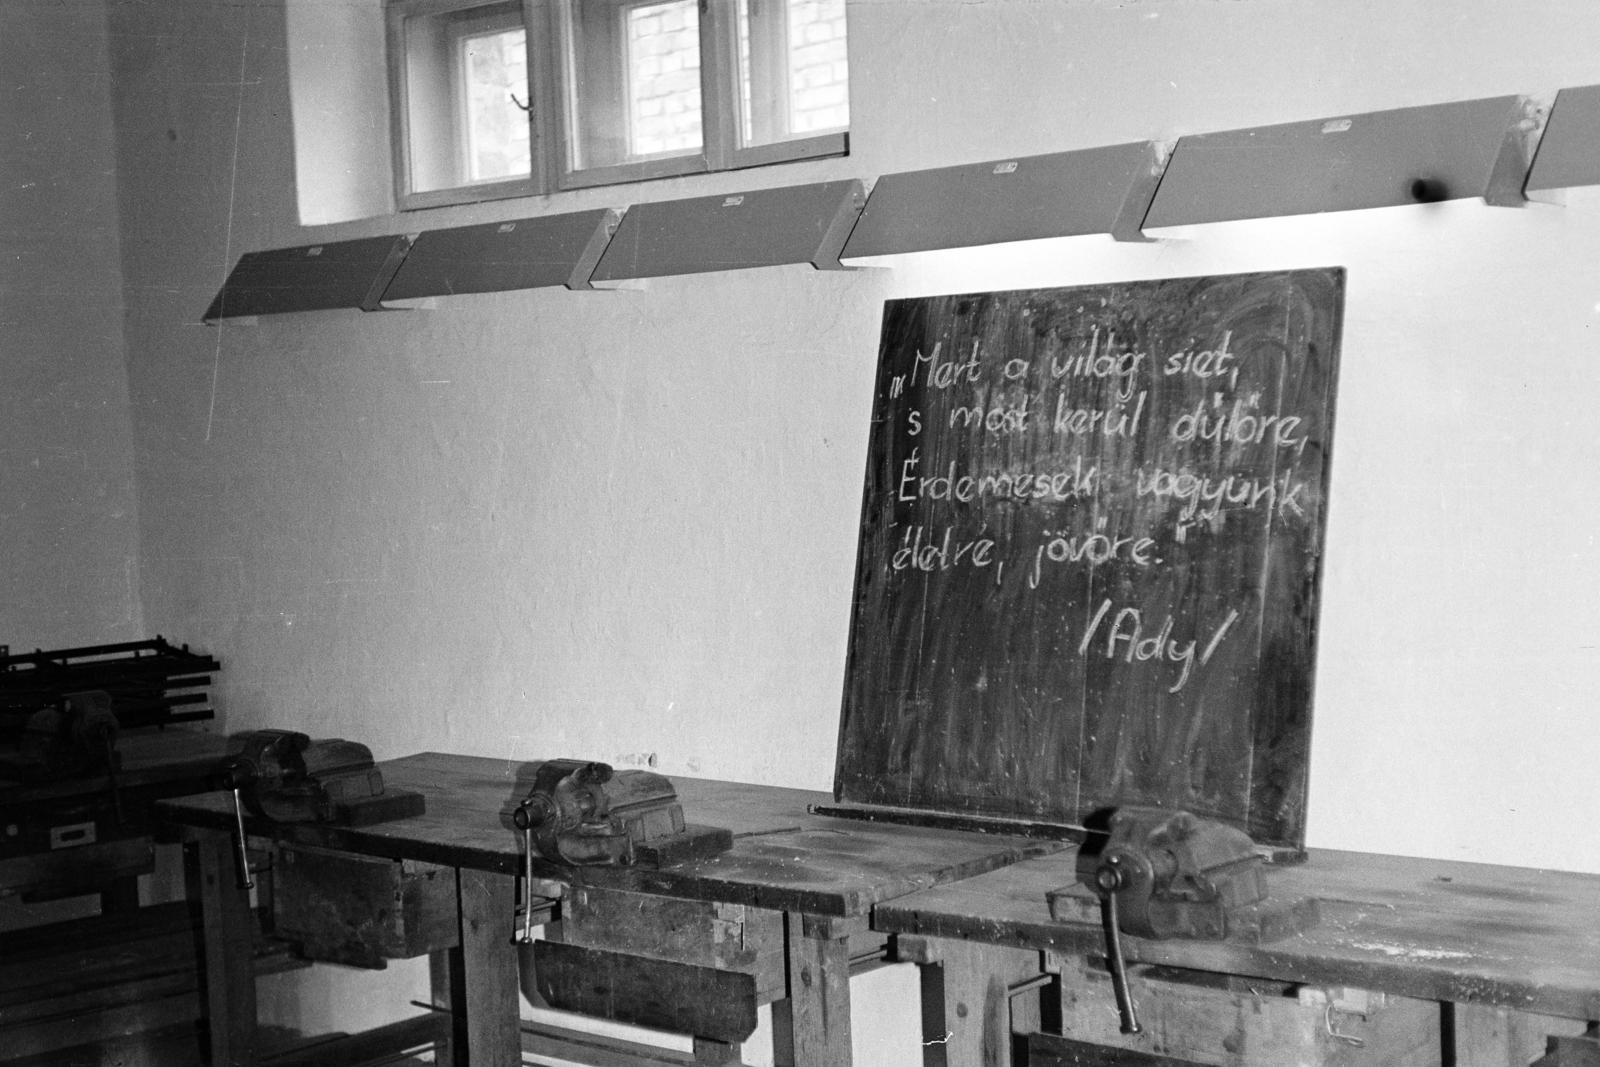 „Mert a világ siet,
s most kerül dűlőre,
Érdemesek vagyunk
életre, jövőre."
/Ady/